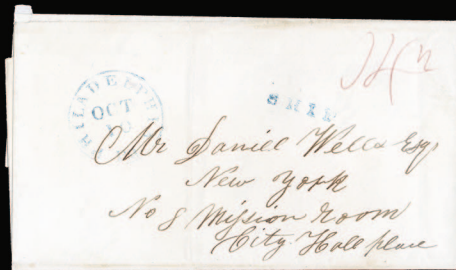 PHILADELPHIA
OCT
SHIP
Mr Daniel Wells Esqr
New York
No 8 Mission Room
City Hall place